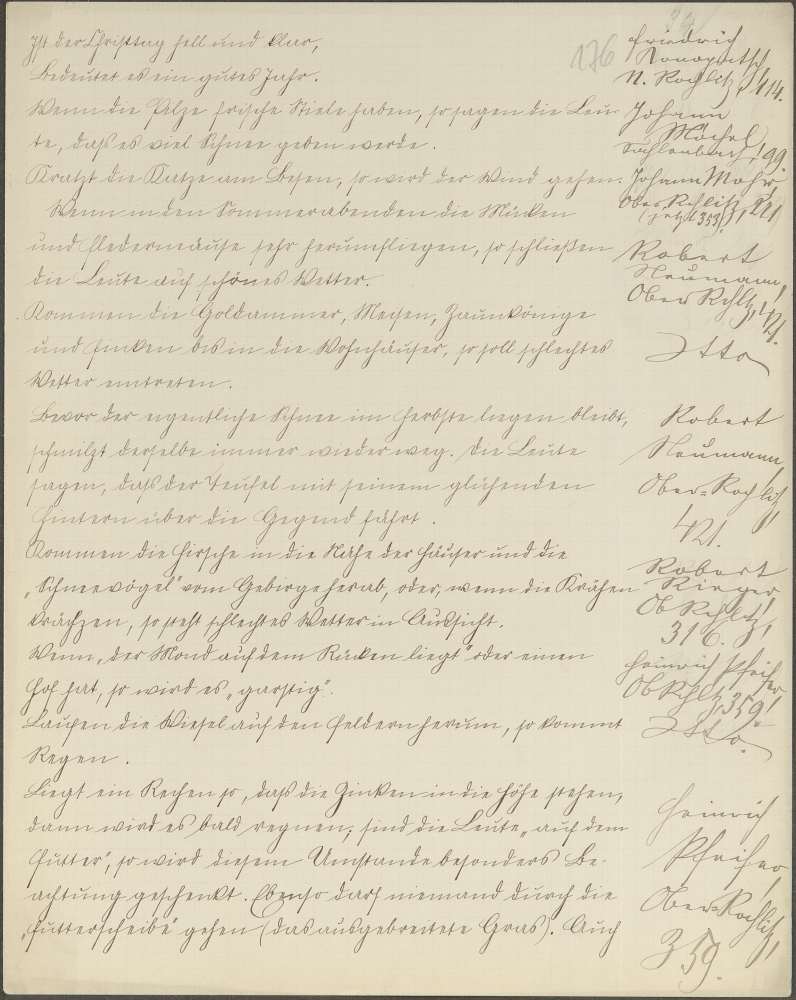 176
Ist der Christtag hell und klar,
Bedeutet es ein gutes Jahr.
Friedrich
N. Rochlitz, 414.
Wenn die Pilze frische Stiele haben, so sagen die Leu-
te, daß es viel Schnee geben werde.
Johann
Möchel
Sahlenbach, 199.
Kratzt die Katze am Besen, so wird der Wind gehen.
Johann Mohr
Wenn in den Sommerabenden die Mücken
und Fledermäuse sehr herumfliegen, so schließen
die Leute auf schönes Wetter.
Ober Rchlitz, 221
(jetzt 353).
Kommen die Goldammer, Meisen, Zaunkönige
und Finken bis in die Wohnhäuser, so soll schlechtes
Wetter eintreten.
Robert
Neumann,
Ober Rchltz, 421.
Itto
Bevor der eigentliche Schnee im Herbste liegen bleibt,
schmilzt derselbe immer wieder weg. Die Leute
sagen, daß der Teufel mit seinem glühenden
Hintern über die Gegend fährt.
Robert
Neumann,
Ober-Rochlitz,
421.
Kommen die Hirsche in die Nähe der Häuser und die
„Schneevögel" vom Gebirge herab, oder, wenn die Krähen
krächzen, so steht schlechtes Wetter in Aussicht.
Robert
Rieger
Ob Rchltz,
316.
Wenn „der Mond auf dem Rücken liegt" oder einen
Hof hat, so wird es „garstig".
Heinrich Pfeifer
Ob Rchltz, 359.
Laufen die Wiesel auf den Feldern herum, so kommt
Regen.
Itto.
Liegt ein Rechen so, daß die Zinken in die Höhe stehen,
dann wird es bald regnen; sind die Leute „auf dem
Futter", so wird diesem Umstande besonders Be-
achtung geschenkt. Ebenso darf niemand durch die
„Futterscheibe" gehen (das ausgebreitete Gras). Auch
Heinrich
Pfeifer,
Ober-Rochlitz,
359.